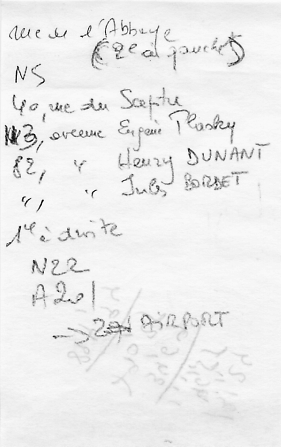 rue de l'Abbaye
(2e à gauche)
N5
40, rue du Sceptre
3, avenue Eugène Plasky
82, " Henry DUNANT
", " Jules BORDET
1e à droite
N22
A201
→ AIRPORT